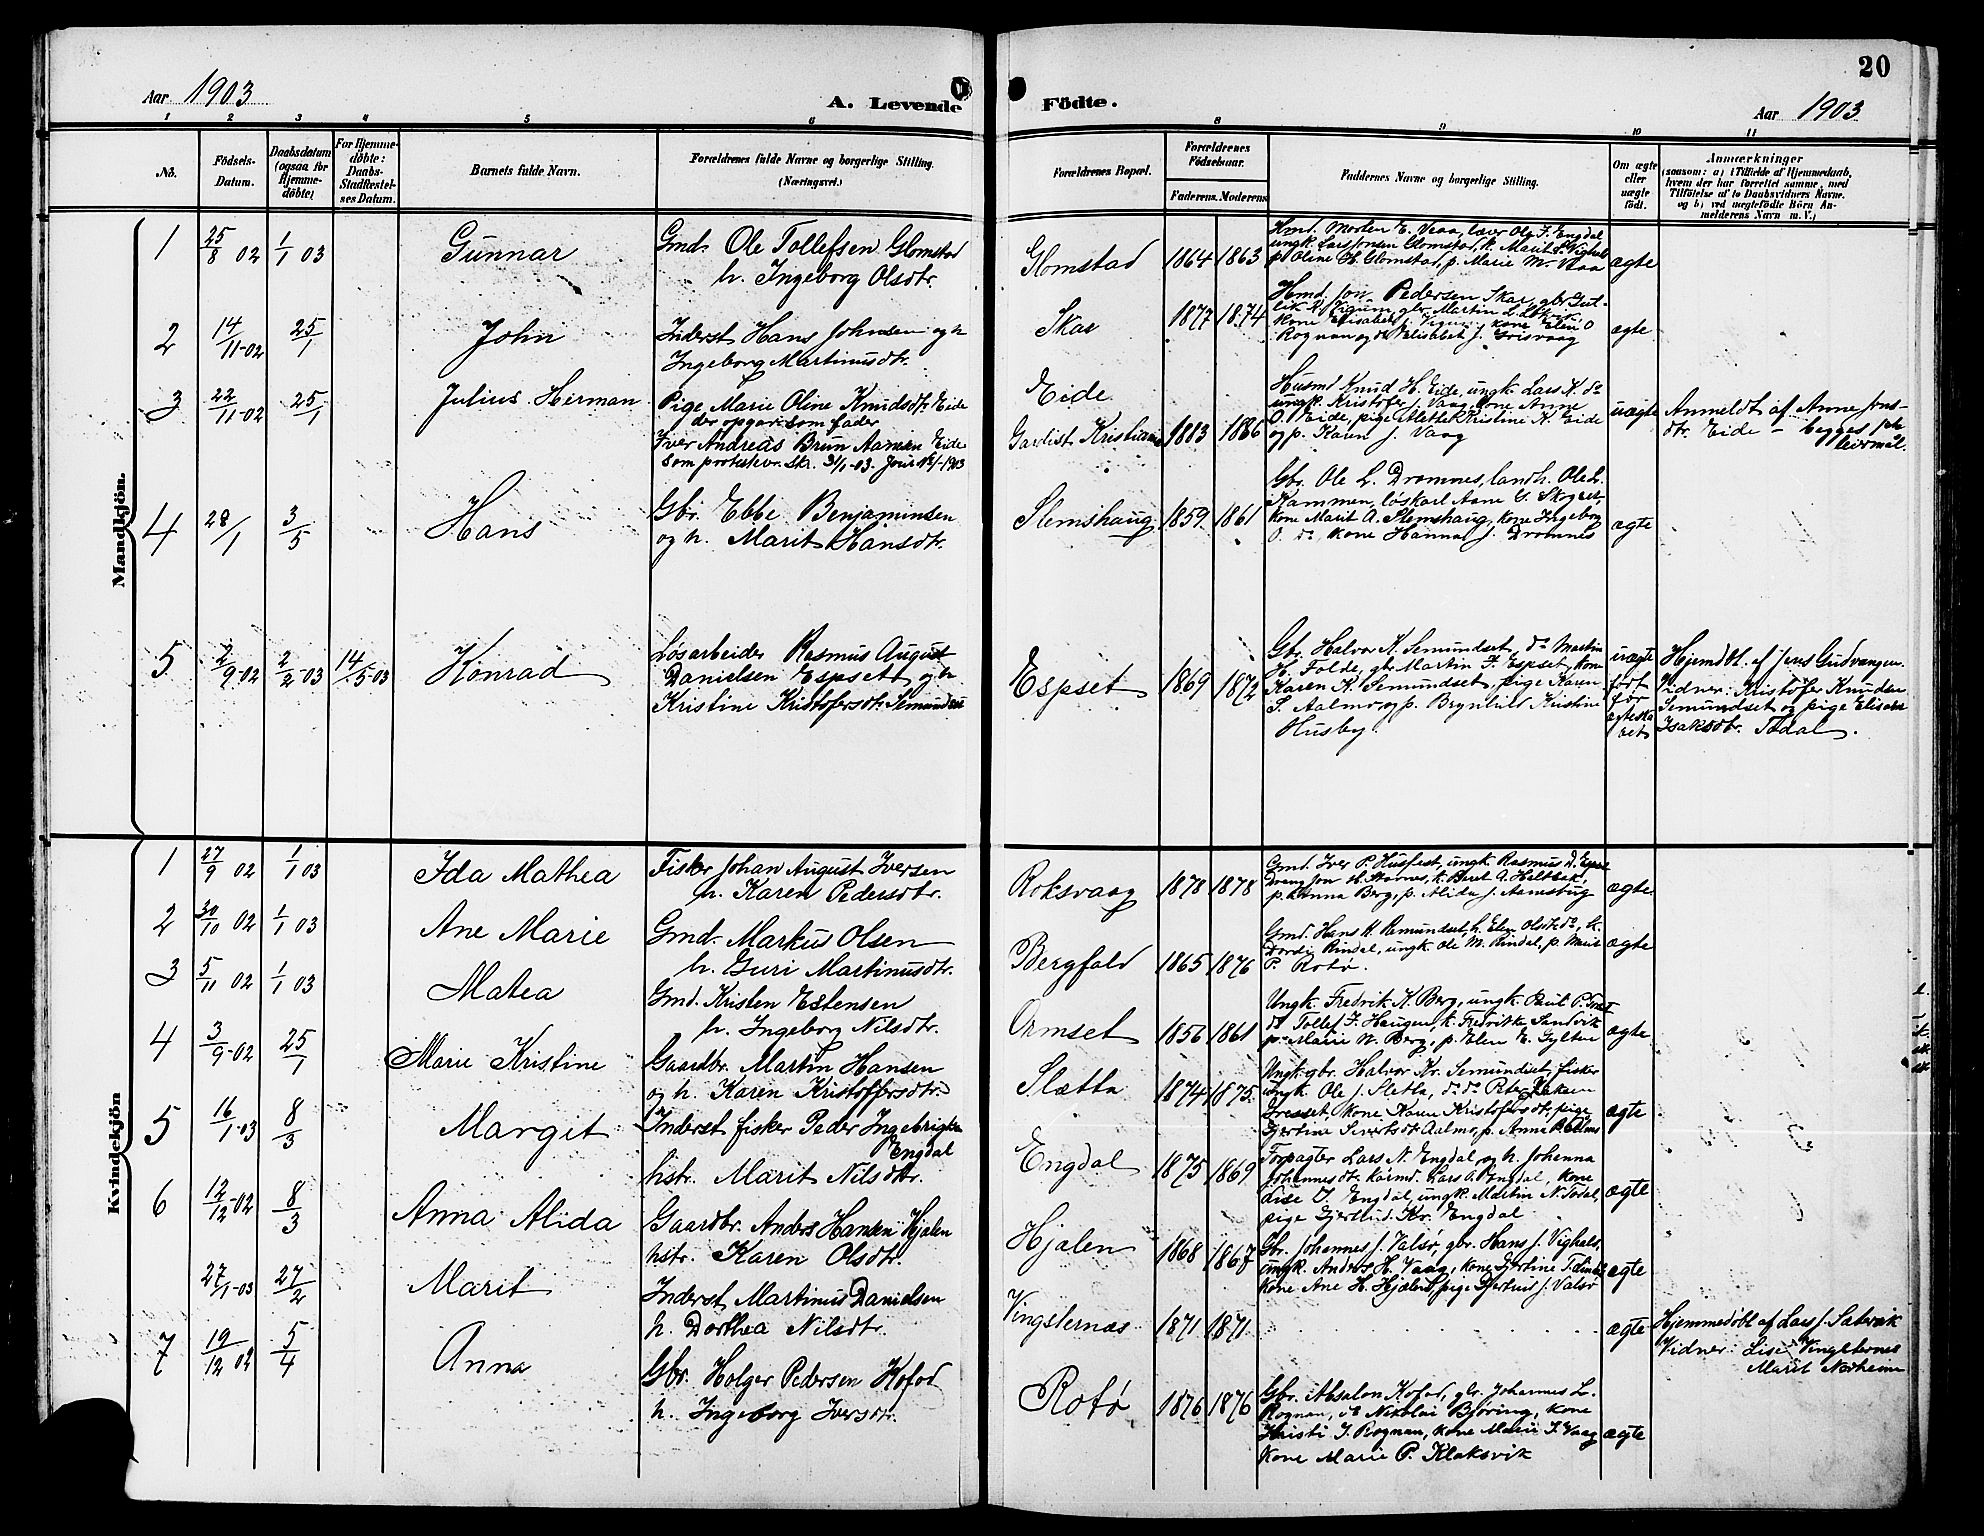 20
Aar 1903
A. Levende Födte.
Aar 1903
1 2 3 4 5 6 8 9 10 11
No.
Födsels-Datum.
Daabsdatum (ogsaa for Hjemme-døbte)
For Hjemme-døbte: Daabs-Stadfæstel-ses Datum.
Barnets fulde Navn.
Forældrenes fulde Navne og borgerlige Stilling.
(Næringsvei.)
Forældrenes Bopæl.
Forældrenes Födselsaar.
Faderens. Moderens.
Faddernes Navne og borgerlige Stilling.
Om ægte eller uægte födt.
Anmærkninger
(saasom: a) i Tilfælde af Hjemmedaab,
hvem der har forrettet samme, med
Tilföielse af to Daabsvidners Navne.
og b) ved uægtefödte Börn An-
melderens Navn m. V.)
Mandkjön.
1 25/8 02 1/1 03 Gunnar
Gmd. Ole Tollefsen Glomstad
h. Ingeborg Olsdtr.
Glomstad 1864 1863
Hmd. Morten E. Vaa, lærer Ole F. Engdal
ungk. Lars Jonsen Glomstad, k. Marit Vighals
p. Oline H. Glomstad, p. Marie M. Vaa
ægte
2 14/11-02 25/1 John
Inderst Hans Johnsen og h
Ingeborg Martinusdtr.
Skar 1877 1874
Hmd. Jon Pedersen Skar, gbr
kone Elisabet kone Elen O
Rognan og Elisabet J. Grisvaag
ægte
3 22/11-02 25/1 Julius Herman
Pige Marie Oline Knudsdtr Eide
der opgav som fader
Iver Andreas Brun Aamsen Eide
som protesterer Skr. 31/1-03.
Eide
Kristiania 1883 1886
Husmd Knud H. Eide, ungk. Lars K. do
ungk. Kristofer J. Vaag, kone Anne
O. Eide, pige Kristine K. Eide
og p. Karen J. Vaag
uægte
Anmeldt af Anne Jons-
dtr. Eide – begges 1ste
leirmål.
4 28/1 3/5 Hans
Gbr. Ebbe Benjaminsen
og h. Marit Hansdtr.
Slemshaug 1859 1861
Gbr. Ole L. Dromnes, landh. Ole L.
Kammen, løskarl
kone Marit A. Slemshaug, kone Ingeborg
O. do kone Hanna J. Dromnes
ægte
5 2/9-02 2/2-03 14/5-03 Konrad
Løsarbeider Rasmus August
Danielsen Espsett og h
Kristine Kristofersdtr. Semundset
Espset 1869 1872
Gbr. Halvor K. Semundset, do Martin
H. Folde, gbr. Martin F. Espset, kone
Karen K. Semundset, pige Karen
S. Aalmo, og p. Brynhild Kristine
Husby
uægte
født
før
ægteska
bet
Hjemdbt. af Jens Gudvangen.
Vidner: Kristofer Knudsen
Semundset og pige
Isaksdtr. Todal.
Kvindekjön
1 27/9 02 1/1 03 Ida Mathea
Fisker Johan August Iversen
h. Karen Pedersdtr.
Roksvaag 1878 1878
Gmd. Iver P. Husfest, ungk. Rasmus D.
p. Anna Berg, p. Alida J.
ægte.
2 30/10 02 1/1 03 Ane Marie
Gmd. Markus Olsen
h. Guri Martinusdtr.
Bergfald 1865 1876
Gmd. Hans H. Semundset, h. Elen do, k.
Rindal, ungk. Ole M. Rindal, p. Marit
P. Rotø.
ægte
3 5/11 02 1/1 03 Matea
Gmd. Kristen Estensen
h. Ingeborg Nilsdtr.
Ormset 1856 1861
Ungk. Fredrik K. Berg, ungk. Paul P.
do Tollef F. Haugen, k. Fredrikke Sandvik
p. Marie N. Berg, p. Elen E. Gylten
ægte
4 3/9-02 25/1 Marie Kristine
Gaardbr. Martin Hansen
og h. Karen Kristoffersdtr.
Slætta 1874 1875
Ungk. gbr. Halvor Kr. Semundset, fisker
ungk Ole J. Sletta, do do Peter
kone Karen Kristofersdtr, pige
Gjertine Sivertsdtr Aalmo, p. Anna
ægte
5 16/1-03 8/3 Margit
Inderst fisker Peder Ingebrigtsen
Engdal
hstr. Marit Nilsdtr.
Engdal 1875 1869
Forpagter Lars N. Engdal og h. Johanna
Johannesdtr. Lars O. Engdal, kone
Lise I. Engdal, ungk. Martin N. Todal,
pige Gjertrud Kr. Engdal
ægte
6 12/12-02 8/3 Anna Alida
Gaardbr. Anders Hansen Hjalen
hstr. Karen Olsdtr.
Hjalen 1868 1867
Gbr. Johannes J. Valsø, gbr. Hans J. Vighals,
ungk. Anders H. Vaag, kone Gjertine
kone Ane H. Hjalen, pige Gjertrud J. Valsø
ægte
27/1-03 27/2 Marit
Inderst Martinus Danielsen
h. Dorthea Nilsdtr.
Vingsternæs 1871 1871
ægte
Hjemmedøbt af Lars J. Sætervik
Vidner: Lise Vingsternes
Marit Nerheim
7 19/12 02 5/4 Anna
Gbr. Holger Pedersen Kofod
h. Ingeborg Iversdtr.
Rotø 1876 1876
Gbr. Absalon Kofod, gbr. Johannes L.
Rognan, Nikolai Bjøring, kone
Kristi J. Rognan, kone Marie F. Vaag
kone Marie P. Klaksvik
ægte